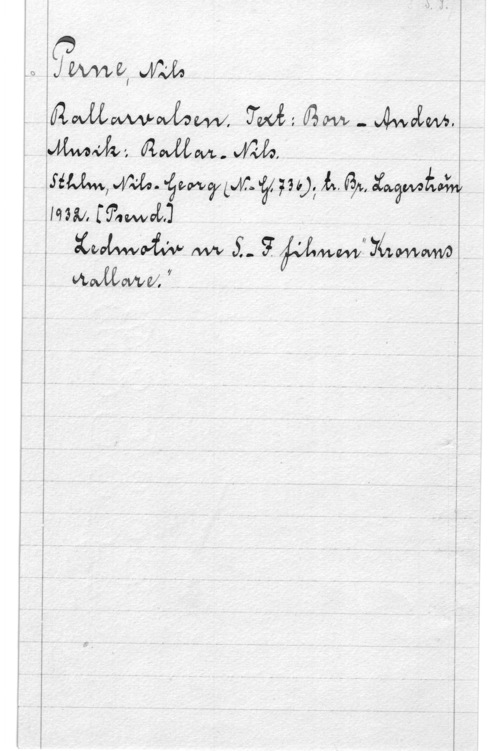 Perne, Nils
Rallarvalsen. Text: Borr-Anders.
Musik: Rallar-Nils.
Sthlm, Nils-Georg (N.-G. 736); tr. Br. Lagerström
1932. [Pseud.]
Ledmotiv ur S.-F. filmen "Kronans
rallare."